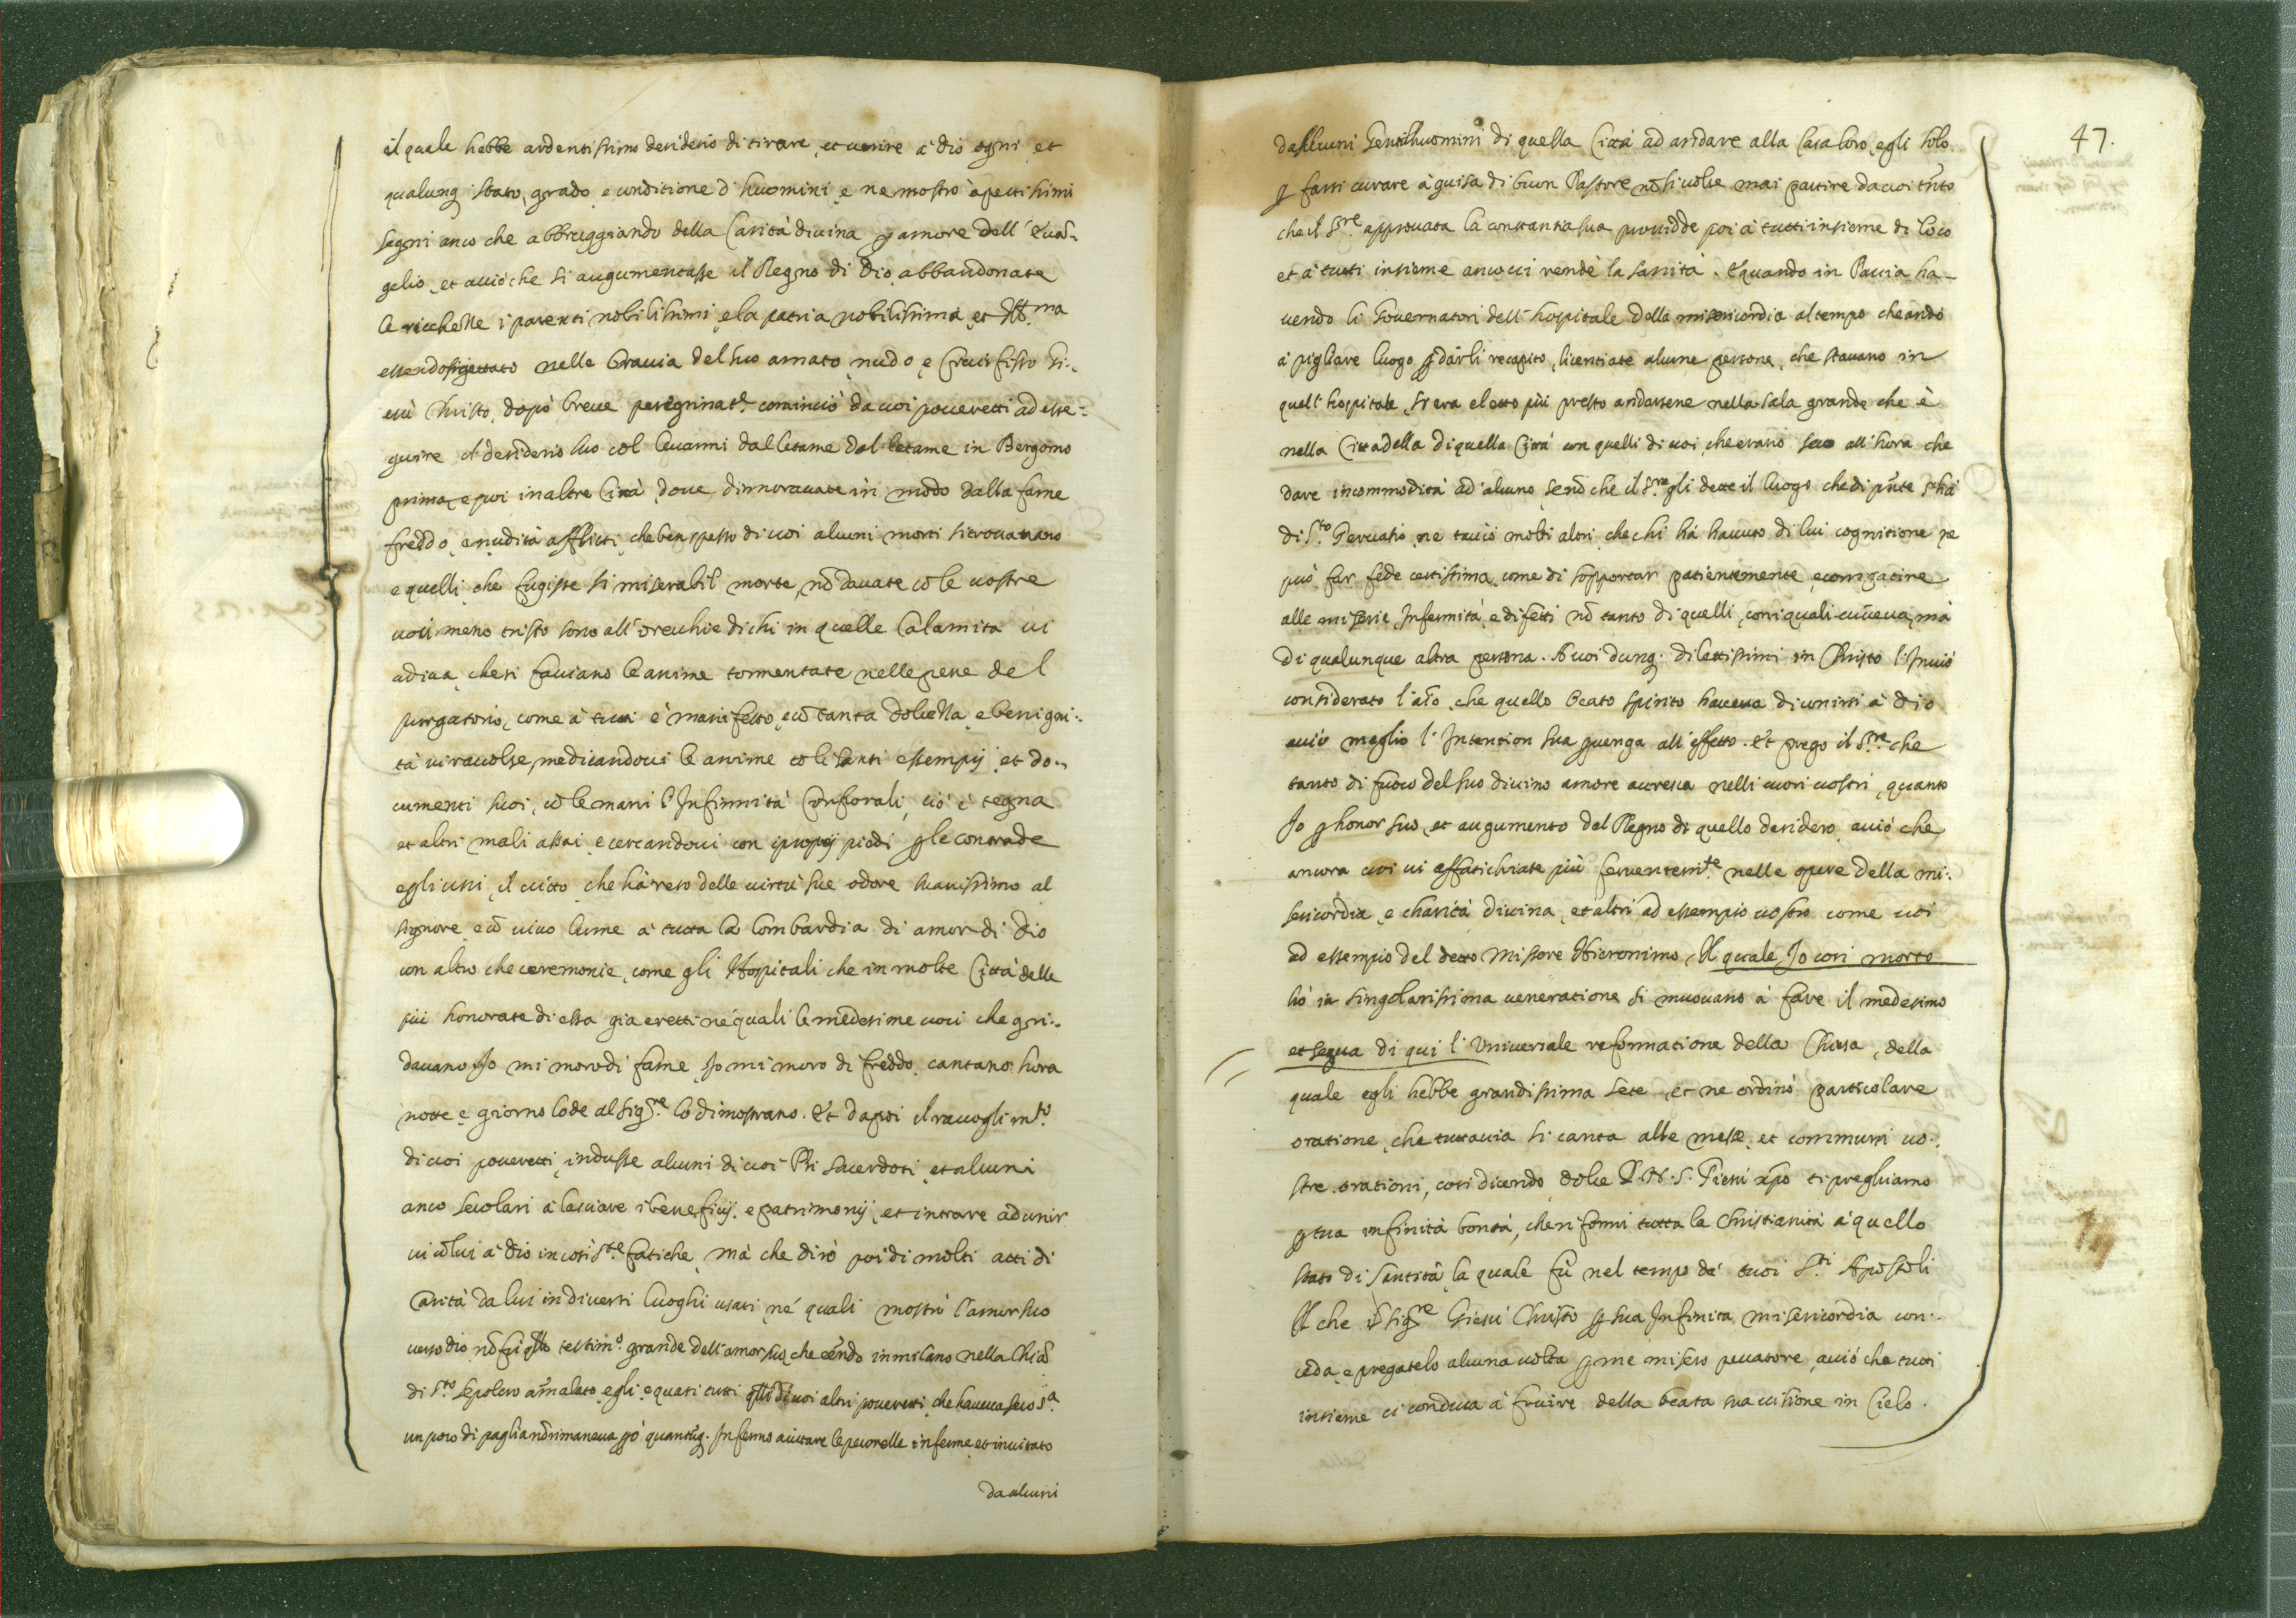 il quale hebbe ardentissimo desiderio di tirare, et unire à Dio ogni, et
qualunq stato, grado, e conditione d'huomini, e ne mostrò apertissimi
segni anco che abbruggiando della Carità divina p amore dell'Eua~-
gelio, et acciò che si augumentasse il Regno di Dio, abbandonate
le ricchezze i parenti nobilissimi, e la patria nobilissima, et Ill.ma
essendosi gettato nelle braccia del suo amato, nudo, e Crucifisso Gi-
esù Christo, dopò breue peregrinat.e cominciò da uoi poueretti ad esse-
guire il desiderio suo col leuarui dal letame dal letame in Bergomo
prima, e poi in altre Città, doue dimorauate in modo dalla fame
freddo, e nudità afflitti, che ben spesso di uoi alcuni morti si trouauano
e quelli, che fugiste si miserabil morte, nō dauate cō le uostre
uoci meno tristo sono all'orecchie di chi in quelle Calamita ui
udiua, che si facciano le anime tormentate nelle pene del
purgatorio, come à tutti è manifesto, e cō tanta dolcezza, e benigni-
tà ui racolse, medicandoui le anime cō li santi essempij, et do-
cumenti suoi, cō le mani l'Infirmità Corporali, ciò è tegna
et altri mali assai, e cercandoui con i proprij piedi p le contrade
egli uni, il uitto, che hà reso delle uirtù sue odore suauissimo al
signore, e cō uiuo lume à tutta la lombardia di amor di Dio
con altro che ceremonie, come gli Hospitali che in molte Città delle
più honorate di essa gia eretti ne quali le medesime uoci che gri-
dauano Io mi moro di fame, Io mi moro di freddo, cantano hora
notte, e giorno lode al Sig.re lo dimostrano. Et dapoi il racoglim.to
di uoi poueretti, indusse alcuni di uoi Pri sacerdoti, et alcuni
anco secolari à lasciare i beneficij, e patrimonij, et intrare ad unir
ui cō lui à Dio in così s.te fatiche, mà che dirò poi di molti atti di
Carità da lui in diuersi luoghi usati, né quali mostrò l'amor suo
verso dio, nō fù qsto testim.o grande dell'amor suo, che eēndo in milano nella Chiā
di S.to Sepolcro amalato, egli, e quasi tutti qlli di uoi altri poueretti, che haueua seco s.a
un poco di paglia nō rimaneua pò quantūq. Infermo aiutare le pecorelle inferme, et inuitato
da alcuni
47.
da alcuni Gentilhuomini di quella Città ad andare alla Casa loro, egli solo
p farsi curare à guisa di buon Pastore nō si uolse mai partire da uoi tn̄to
che il S.re approuata la constantia sua prouidde poi à tutti insieme di loco
et à tutti insieme anco ui rendè la sanità. E quando in Pauia ha-
uendo li Gouernatori dell'hospitale della misericordia al tempo che andò
à pigliare luogo p darli recapito, licentiate alcune persone, che stauano in
quell'hospitale, si era eletto più presto andarsene nella sala grande che è
nella Cittadella di quella Città con quelli di uoi, che erano seco all'hora che
dare incommodità ad alcuno, se nō che il S.re gli dette il luogo che di pn̄te s'hà
di S.to Geruasio, ne taccio molti altri, che chi hà hauuto di lui cognitione ne
può far fede certissima, come di sopportar patientemente, e compatire
alle miserie, Infermità, e difetti nō tanto di quelli, con i quali uiueua, mà
di qualunque altra persona. A uoi dunq. dilettissimi in Christo l'Inuiò
considerato l'aīo, che quello beato spirito haueua di unirsi à Dio
acciò meglio l'Intention sua puenga all'effetto. Et prego il S.re che
tanto di fuoco del suo diuino amore accresca nelli cuori uostri, quanto
Io p honor suo, et augumento del Regno di quello desidero, acciò che
ancora uoi ui affatichiate più feruentem.te nelle opere della mi-
sericordia, e charità diuina, et altri ad essempio uostro come uoi
ad essempio del detto Missere Hieronimo, Il quale Io cosi morto
hò in singolarissima ueneratione si muouano à fare il medesimo
et segua di qui l'Uniuersale reformatione della Chiesa, della
quale egli hebbe grandissima sete, et ne ordinò particolare
oratione, che tuttauia si canta alle mese, et communi uo-
stre orationi, cosi dicendo, dolce P. N. S. Giesù xp̄o ti preghiamo
p tua infinità bontà, che riformi tutta la Christianità à quello
stato di Santità, la quale fù nel tempo de' tuoi S.ti Apostoli
Il che il Sig.re Giesù Christo p sua Infinita misericordia con-
ceda, e pregatelo alcuna uolta p me misero peccatore, acciò che tutti
insieme ci conduca à fruire della beata sua uisione in Cielo.